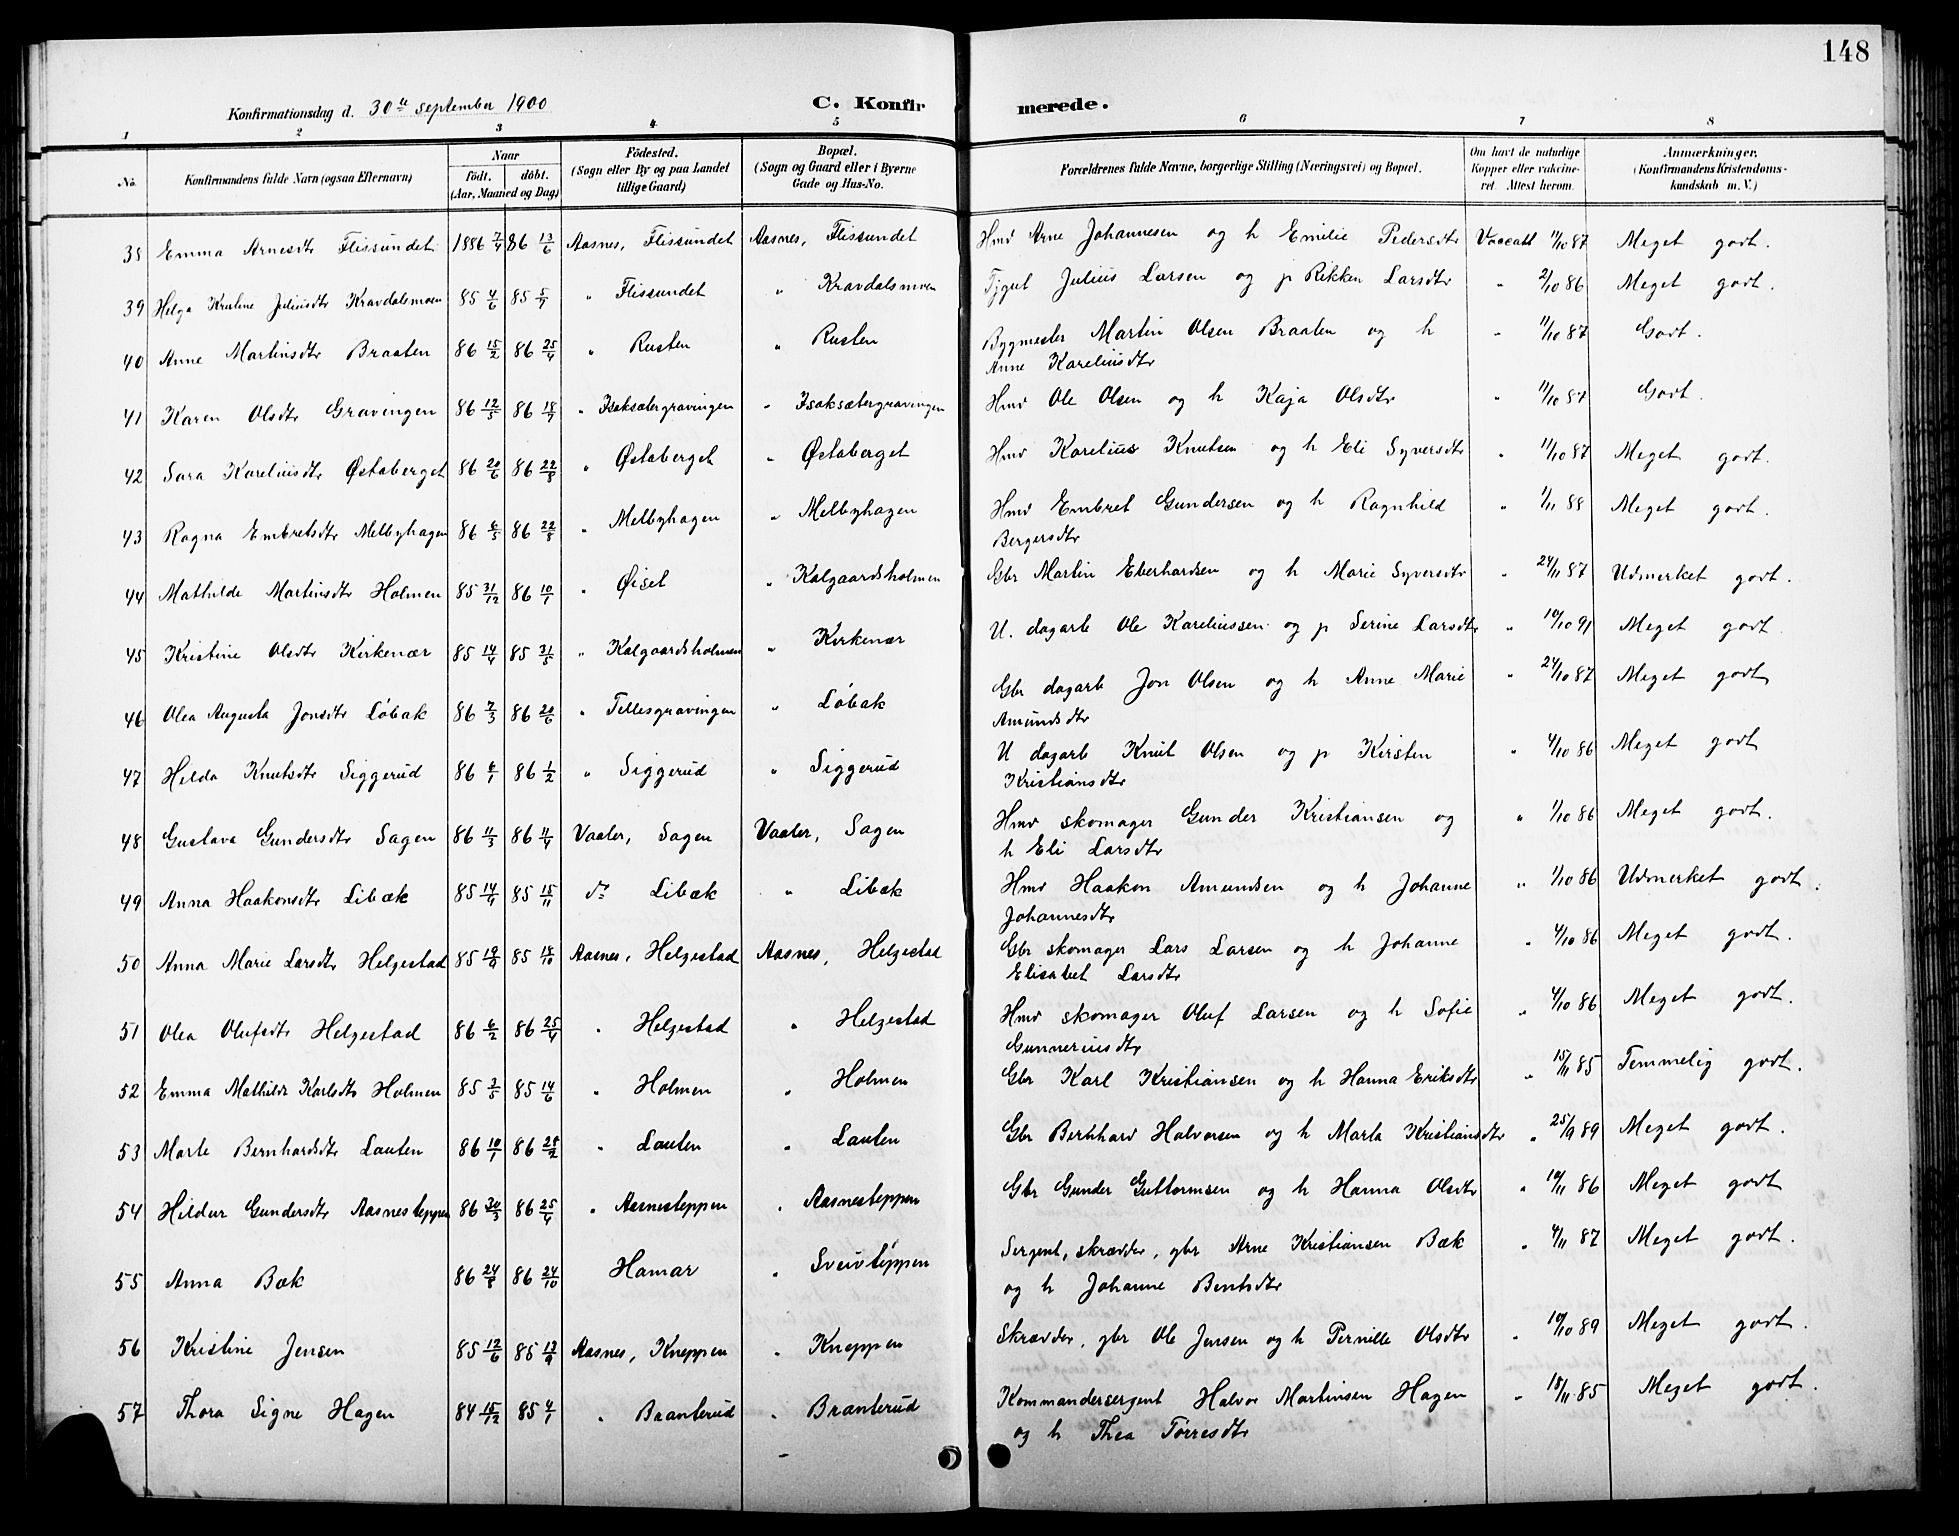 148
Konfirmationsdag d. 30te september 1900 C. Konfirmerede.
1 2 3 4 5 6 7 8
No. Konfirmandens fulde Navn (ogsaa Efternavn) Naar födt. döbt. (Aar, Maaned og Dag) Födested. (Sogn eller By og paa Landet tillige Gaard) Bopæl. (Sogn og Gaard eller i Byerne Gade og Hus-No. Forældrenes fulde Navne, borgerlige Stilling (Næringsvei) og Bopæl. Om havt de naturlige Kopper eller vakcineret. Attest herom. Anmærkninger. (Konfirmandens Kristendomskundskab m. V.)
38 Emma Arnesdtr Flissundet 1886 7/4 86 13/6 Aasnes, Flissundet Aasnes, Flissundet Hmd Arne Johannesen og h Emilie Pedersdtr Vaccatt 11/10 87 Meget godt.
39 Helga Juliusdtr Kravdalsmoen 85 4/6 85 5/7 " Flissundet " Kravdalsmoen Julius Larsen og p Rikken Larsdtr " 2/10 86 Meget godt.
40 Anne Martinsdtr Braaten 86 15/2 86 25/4 " Rusten " Rusten Bygmester Martin Olsen Braaten og h " 11/10 87 Godt.
Anne Kareliusdtr
41 Karen Olsdtr Gravingen 86 12/5 86 18/7 " Isaksætergravingen " Isaksætergravingen Hmd Ole Olsen og h Kaja Olsdtr " 11/10 87 Godt.
42 Sara Kareliusdtr Østaberget 86 20/6 86 22/8 " Østaberget " Østaberget Hmd Karelius Knutsen og h Eli Syversdtr " 11/10 87 Meget godt.
43 Ragna Embretsdtr Melbyhagen 86 6/5 86 22/8 " Melbyhagen " Melbyhagen Hmd Embret Gundersen og h Ragnhild " 1/11 88 Meget godt.
Bergersdtr
44 Mathilde Martinsdtr Holmen 85 31/12 86 10/1 " Øiset " Kalgaardsholmen Gbr Martin Eberhardsen og h Marie Syversdtr " 24/11 87 Udmerket godt.
45 Kristine Olsdtr Kirkenær 85 14/4 85 31/5 " Kalgaardsholmen " Kirkenær U. dagarb Ole Kareliussen og p Serine Larsdtr " 10/10 91 Meget godt.
46 Olea Augusta Jonsdtr Løbak 86 7/3 86 20/6 " Tellesgravingen " Løbak Gbr dagarb Jon Olsen og h Anne Marie " 24/10 87 Meget godt
Amundsdtr
47 Hilda Knutsdtr Siggerud 86 6/1 86 1/2 " Siggerud " Siggerud U dagarb Knut Olsen og p Kirsten " 4/10 86 Meget godt
Kristiansdtr
48 Gustava Gundersdtr Sagen 86 11/3 86 11/4 Vaaler, Sagen Vaaler, Sagen Hmd skomager Gunder Kristiansen og " 1/10 86 Meget godt.
h Eli Larsdtr
49 Anna Haakonsdtr Libæk 85 14/9 85 15/11 do Libæk " Libæk Hmd Haakon Amundsen og h Johanne " 1/10 86 Udmerket godt.
Johannesdtr
50 Anna Marie Larsdtr Helgestad 85 19/9 85 18/10 Aasnes, Helgestad Aasnes, Helgestad Gbr skomager Lars Larsen og h Johanne " 4/10 86 Meget godt.
Elisabet Larsdtr
51 Olea Olufsdtr Helgestad 86 6/2 86 25/4 " Helgestad " Helgestad Hmd skomager Oluf Larsen og h Sofie " 4/10 86 Meget godt.
Gunneriusdtr
52 Emma Mathilde Karlsdtr Holmen 85 3/5 85 14/6 " Holmen " Holmen Gbr Karl Kristiansen og h Hanna Eriksdtr " 15/11 85 Temmelig godt.
53 Marte Bernhardsdtr Lauten 86 10/1 86 28/2 " Lauten " Lauten Gbr Bernhard Halvorsen og h Marta Kristiansdtr " 25/9 89 Meget godt.
54 Hildur Gundersdtr Aasnesteppen 86 30/3 86 25/4 " Aasnesteppen " Aasnesteppen Gbr Gunder Guttormsen og h Hanna Olsdtr " 10/11 86 Meget godt
55 Anna Bæk 86 24/8 86 24/10 Hamar " Sveivteppen Sergent, skrædder, gbr Arne Kristiansen Bæk " 4/11 87 Meget godt.
og h Johanne Berntsdtr
56 Kristine Jensen 85 12/6 85 13/9 Aasnes, Kneppen " Kneppen Skrædder, gbr Ole Jensen og h Pernille Olsdtr " 10/10 89 Meget godt.
57 Thora Signe Hagen 84 15/12 85 4/1 " Branterud " Branterud Kommandersergent Halvor Martinsen Hagen " 18/11 85 Meget godt.
og h Thea Tørresdtr